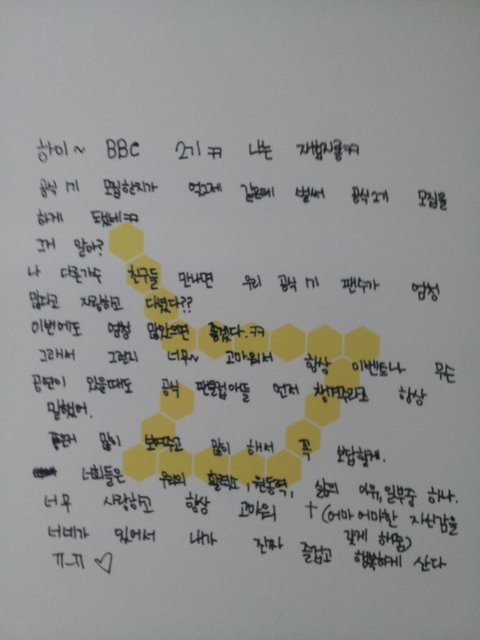 하이~ BBC 2기ㅋㅋ 나는
공식 1기 모집한지가 엊그제 같은데 벌써 공식2기 모집을
하게 됐네ㅋㅋ
그거 알아?
나 다른가수 친구들 만나면 우리 공식 1기 팬수가 엄청
많다고 자랑하고 다녔다??
이번에도 엄청 많았으면 좋겠다.ㅋㅋ
그래서 그런지 너무~ 고마워서 항상 이벤트나 무슨
공연이 있을때도 공식 팬클럽아들 먼저 챙겨주라고 항상
말했었어.
많이 보여주고 많이 해서 꼭 보답할게.
너희들은 우리의 활력소, 원동력, 삶의 이유, 일부중 하나.
너무 사랑하고 항상 고마워 + (어마어마한 자신감을
갖게 해줌)
너네가 있어서 내가 진짜 즐겁고 행복하게 산다
ㅠ_ㅠ ♡